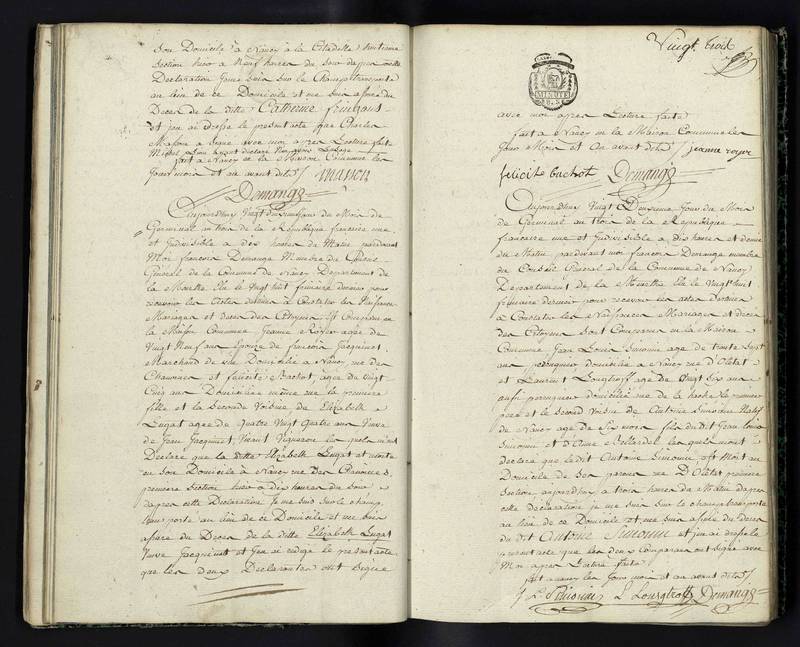 Son Domicile à Nancy à la Citadelle huitieme
Section hier à Neuf heures du Soir dapres cette
Declaration Je me Suis Sur le Champ transporté
au lieu de ce Domicile et me Suis assuré du
Deces de la ditte Catherine
et jen ai dressé le present acte que Charles
Masson a Signé avec moi apres Lecture fait
Michel ayant declaré
fait a Nancy en la Maison Commune les
Jour mois et an avant dits Masson
Demange
Aujourdhuy Vingt du Mois de
Germinal an trois de la Republique francoise une
et Indivisible a dix heures du Matin pardevant
Moi francois Demange Membre du Conseil
General de la Commune de Nancy Departement de
la Meurthe Elu le Vingt huit frimaire dernier pour
recevoir les Actes destinés a Constater les Naissances
Mariages et deces des Citoyens Est Comparu en
la Maison Commune Jeanne Royer agée de
Vingt Neuf ans Epouse de francois Jacquinet
Marchand de vin Domiciliée a Nancy rue des
Chanoines et felicité Bachot, agée de Vingt
Cinq ans Domiciliée même rue la premiere
fille et la Seconde Voisine de Elizabeth
Lugat agée de Quatre Vingt Quatre ans Veuve
de Jean Jacquinet, Vivant Vigneron les quels m'ont
Declaré que la ditte Elizabeth Lugat est morte
en Son Domicile à Nancy rue des Chanoines
premiere Section hier a dix heures du Soir
dapres cette Declaration Je me Suis Sur le champ
transporté au lieu de ce Domicile et me Suis
assuré du Deces de la ditte Elizabeth Lugat
Veuve Jacquinet et Jen ai redigé le present acte
que les deux Declarantes ont Signé
Vingt trois
MINUTE
avec moi apres Lecture faite
fait a Nancy en la Maison Commune les
Jour Mois et an avant dits jeanne royer
felicité buchot Demange
Aujourdhuy Vingt Deuxieme Jour du Mois
de Germinal an trois de la Republique
francoise une et Indivisible a dix heures et demie
du Matin pardevant moi francois Demange membre
du Conseil General de la Commune de Nancy
Departement de la Meurthe Elu le Vingt huit
frimaire dernier pour recevoir les actes destinés
a Constater les Naissances Mariages et deces
des Citoyens Sont Comparus en la Maison
Commune Jean Louis Simonin agé de trente Sept
ans perruquier domicilié a Nancy rue
et Laurent Lougtroff agé de Vingt Six ans
aussi perruquier domicilié rue de la hache le premier
pere et le Second Voisin de Antoine Simonin Natif
de Nancy agé de Six mois fils du dit Jean Louis
Simonin et d'Anne les quels m'ont
declaré que le dit Antoine Simonin est Mort au
Domicile de Ses parens rue premiere
Section, aujourdhuy a trois heures du Matin dapres
cette declaration je me Suis Sur le champ transporté
au lieu de ce Domicile et me Suis assuré du Deces
du dit Antoine Simonin et jen ai dressé le
present acte que les deux Comparans ont Signé avec
Moi apres Lecture faite
fait a Nancy les Jour mois et an avant dits
J L Simonin L Lougtroff Demange